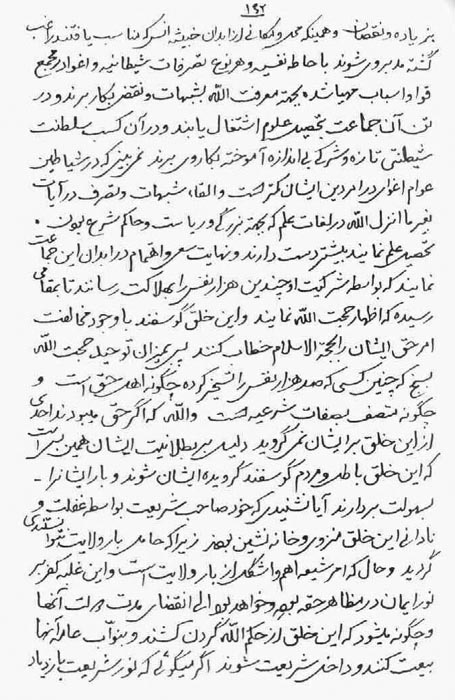 ۱۹۲
بزیاده و نقصان و همینکه محلی و امکانی از ابدان خبیثه انس که مناسب یافتند راغب
گشته مدبر وی شوند با حاطه نفسیه و هر نوع تصرفات شیطانیه و اغوا در مجمع
قوا و اسباب مهیا شده بجهة معرفت الله بشبهات و نقض بکار برند و در
تن آن جماعت تحصیل علوم اشتغال یابند و در آن کسب سلطنت
شیطنتی تازه و شرکی بی اندازه آموخته بکار وی برند نمی بینی که در شیاطین
عوام اغوای در امر دین ایشان کمتر است و القاء شبهات و تصرف در آیات
بغیر ما انزل الله در لغات علم که بجهة بزرگی و ریاست و حاکم شرع بودن
تحصیل علم نمایند بیشتر دست دارند و نهایت سعی و اهتمام در ابدان این جماعت
نمایند که بواسطه شرکیت او چندین هزار نفس را بهلاکت رسانند تا بمقامی
رسیده که اظهار حجت الله نمایند و این خلق گوسفند با وجود مخالفت
امر حق ایشان را بحجة الاسلام خطاب کنند پس بمیزان توحید حجت الله
بسنج که چنین کسی که صد هزار نفس را تسخیر کرده چگونه اهل حق است و
چگونه متصف بصفات شرعیه است والله که اگر حق میبودند احدی
از این خلق بر ایشان نمی گروید دلیل بر بطلانیت ایشان همین بس است
که این خلق باطل و مردم گوسفند گرویده ایشان شوند و بار ایشانرا
بسهولت بردارند آیا نشنیدی که خود صاحب شریعت بواسطه غفلت و
نادانی این خلق منزوی و خانه نشین بود زیرا که حامل بار ولایت نتوانستندی
گردید و حال که امر شیعه اهم و اشکل از بار ولایت است و این غلبه کفر بر
نور ایمان در مظاهر حقه بوده و خواهد بود الی انقضای مدت دولت آنها
و چگونه میشود که این خلق از حکم الله گردن کشند و بنواب عامه آنها
بیعت کنند و داخل شریعت شوند اگر میگوئی که نور شریعت بازدیاد